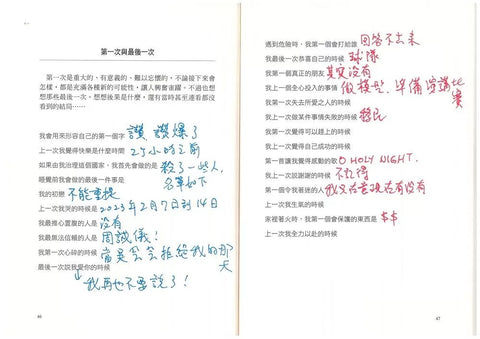 第一次與最後一次
第一次是重大的、有意義的、難以忘懷的，不論接下來會
怎樣，都是充滿各種新的可能性，讓人興奮雀躍，不過也想
想那些最後一次。想想後來是什麼，還有當時甚至連看都沒
看到的結局……
我會用來形容自己的第一個字 讚，讚爆了
上一次我覺得快樂是什麼時間 25小時之前
如果由我治理這個國家，我首先會做的是 殺了一些人，
名單如下
睡覺前我會做的最後一件事是
我的初戀 不能重提
上一次我哭的時候是 2023年2月7日到14日
我最推心置腹的人是 沒有
我最無法信賴的人是 周誠儀！
我第一次心碎的時候 當吳会会拒絕我的那
天
最後一次說我愛你的時候
我再也不要說了！
46
遇到危險時，我第一個會打給誰 回答不出來
我最後一次恭喜自己的時候 球隊
我第一個真正的朋友 其實沒有
我上一個全心投入的事情 做模型、準備演講比
賽
我第一次失去所愛之人的時候
我上一次做某件事情失敗的時候 移民
我第一次覺得可以趕上的時候
我上一個覺得自己成功的時候
第一首讓我覺得感動的歌 O HOLY NIGHT.
我上一次說謝謝的時候 不記得
第一個令我著迷的人
我上一次生氣的時候
家裡著火時，我第一個會保護的東西是
我上一次我全力以赴的時候
47